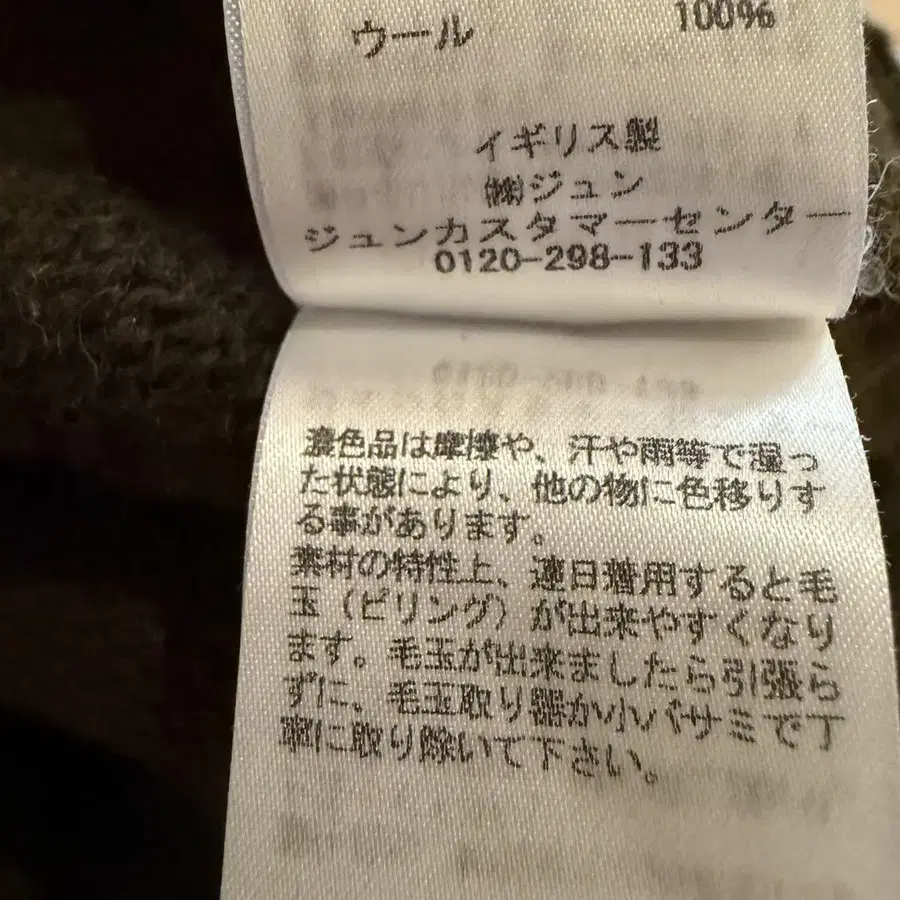 ウール 100%
イギリス製
㈱ジュン
ジュンカスタマーセンター
0120-298-133
濃色品は摩擦や、汗や雨等で湿っ
た状態により、他の物に色移りす
る事があります。
素材の特性上、連日着用すると毛
玉（ピリング）が出来やすくなり
ます。毛玉が出来ましたら引張ら
ずに、毛玉取り器か小バサミで丁
寧に取り除いて下さい。